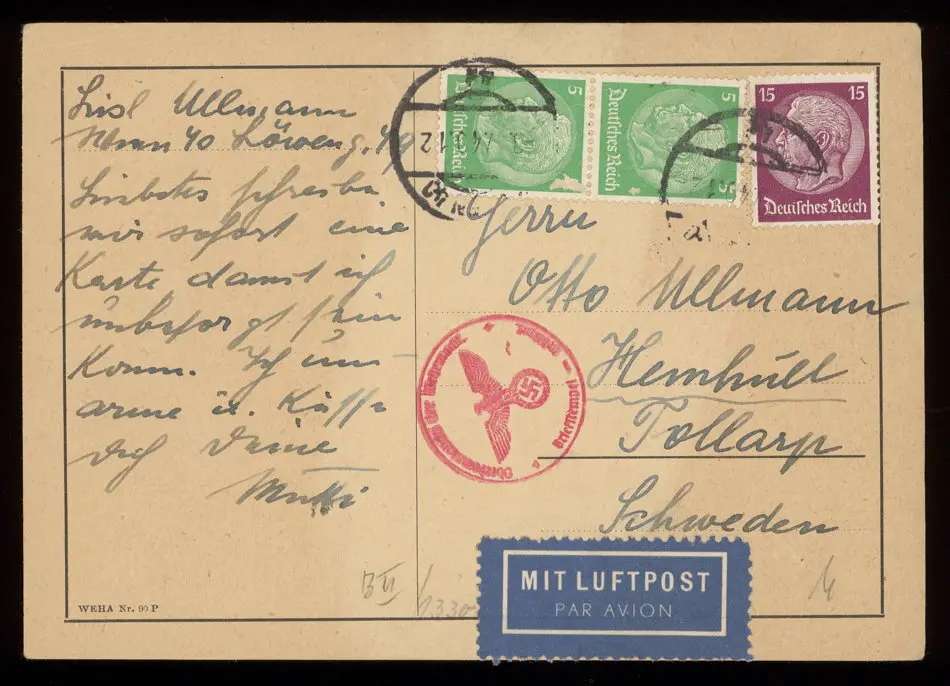 Lisl Ullmann
Wien 40 Löweng. 49
Liebstes schreibe
mir sofort eine
Karte damit ich
unbesorgt sein
kann. Ich um-
arme u. Küsse
dich Deine
Mutti
WEHA Nr. 90 P
5
Deutsches Reich
5
Deutsches Reich
5
15 15
Deutsches Reich
Herrn
Otto Ullmann
Hemhült
Tollarp
Schweden
Oberkommando der Wehrmacht
Briefstempel
MIT LUFTPOST
PAR AVION
B II